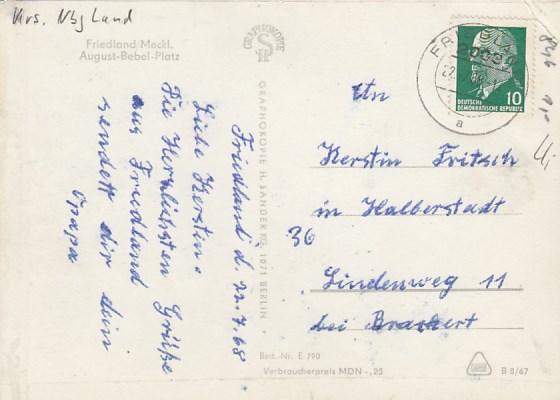 Krs. Nbg Land
Friedland/Meckl.
August-Bebel-Platz
GRAPHOKOPIE
GRAPHOKOPIE H. SANDER KG, 1071 BERLIN
Friedland d. 22.7.68
Liebe Kerstin.
Die Herzlichsten Grüße
aus Friedland
sendett dir dein
Opapa
DEUTSCHE
DEMOKRATISCHE REPUBLIK
10
a
An
Kerstin Fritsch
in Halberstadt
36
Lindenweg 11
bei Brackert
Best.-Nr. E 790
Verbraucherpreis MDN -,25
B 8/67